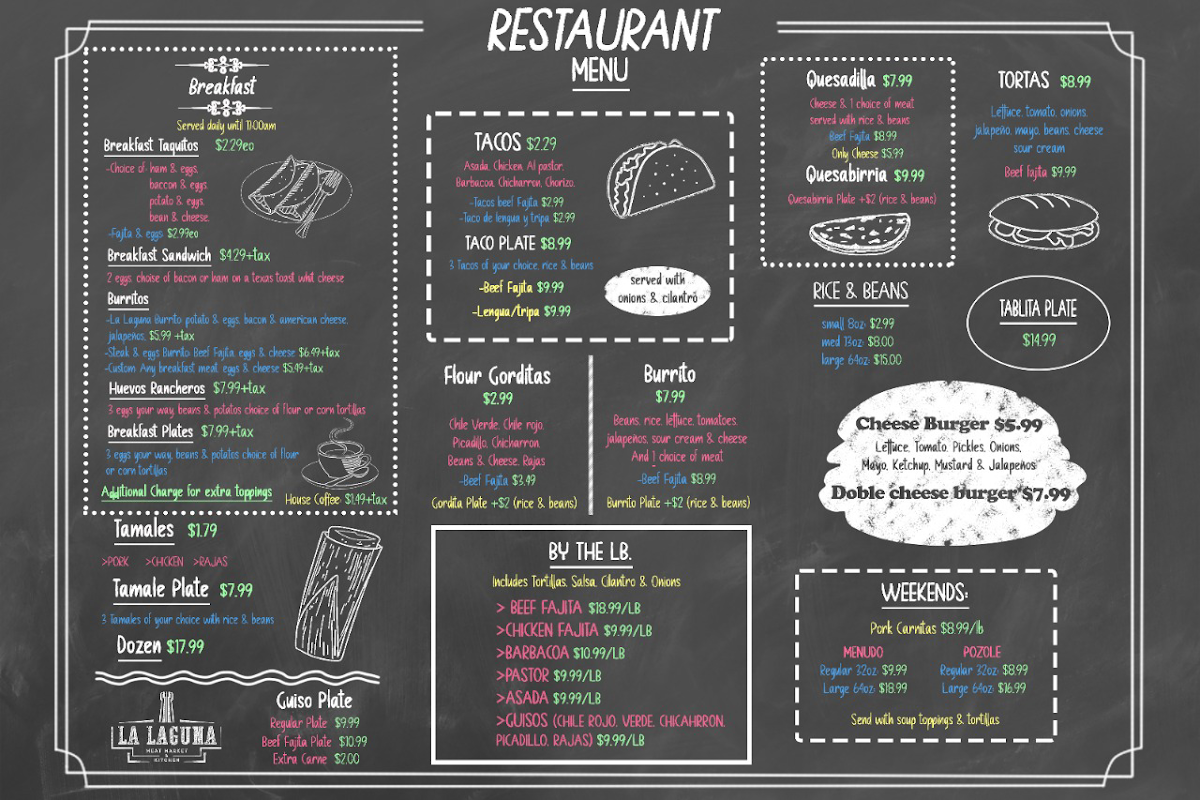 RESTAURANT
MENU
Breakfast
Served daily until 11:00am
Breakfast Taquitos $2.29eo
-Choice of: ham & eggs,
baccon & eggs
potato & eggs,
bean & cheese.
-Fajita & eggs $2.99eo
Breakfast Sandwich $4.29+tax
2 eggs choise of bacon or ham on a texas toast whit cheese
Burritos
-La Laguna Burrito potato & egg, bacon & american cheese,
jalapeños, $5.99 +tax
-Steak & eggs Burrito Beef Fajita, eggs & cheese $6.49+tax
-Custom Any breakfast meat, eggs & cheese $5.49+tax
Huevos Rancheros $7.99+tax
3 eggs your way, beans & potatos choice of flour or corn tortillas
Breakfast Plates $7.99+tax
3 eggs your way, beans & potatos choice of flour
or corn tortillas
Additional Charge for extra toppings
House Coffee: $1.49+tax
Tamales $1.79
>PORK >CHICKEN >RAJAS
Tamale Plate $7.99
3 Tamales of your choice with rice & beans
Dozen $17.99
LA LAGUNA
MEAT MARKET
&
KITCHEN
Guiso Plate
Regular Plate $9.99
Beef Fajita Plate $10.99
Extra Carne $2.00
TACOS $2.29
Asada, Chicken, Al pastor,
Barbacoa, Chicharron, Chorizo,
-Tacos beef Fajita $2.99
-Taco de lengua y tripa $2.99
TACO PLATE $8.99
3 Tacos of your choice, rice & beans
-Beef Fajita $9.99
-Lengua/tripa $9.99
served with
onions & cilantro
Flour Gorditas
$2.99
Chile Verde, Chile rojo,
Picadillo, Chicharron
Beans & Cheese, Rajas
-Beef Fajita $3.49
Gordita Plate +$2 (rice & beans)
Burrito
$7.99
Beans, rice, lettuce, tomatoes,
jalapeños, sour cream & cheese
And 1 choice of meat
-Beef Fajita $8.99
Burrito Plate +$2 (rice & beans)
BY THE LB.
Includes Tortillas, Salsa, Cilantro & Onions
> BEEF FAJITA $18.99/LB
>CHICKEN FAJITA $9.99/LB
>BARBACOA $10.99/LB
>PASTOR $9.99/LB
>ASADA $9.99/LB
>GUISOS (CHILE ROJO, VERDE, CHICAHRRON,
PICADILLO, RAJAS) $9.99/LB
Quesadilla $7.99
Cheese & 1 choice of meat
served with rice & beans
Beef Fajita $8.99
Only Cheese $5.99
Quesabirria $9.99
Quesabirria Plate +$2 (rice & beans)
TORTAS $8.99
Lettuce, tomato, onions,
jalapeño, mayo, beans, cheese
sour cream
Beef fajita $9.99
RICE & BEANS
small 8oz: $2.99
med 13oz: $8.00
large 64oz: $15.00
TABLITA PLATE
$14.99
Cheese Burger $5.99
Lettuce, Tomato, Pickles, Onions,
Mayo, Ketchup, Mustard & Jalapeños
Doble cheese burger $7.99
WEEKENDS:
Pork Carnitas $8.99/lb
MENUDO
Regular 32oz: $9.99
Large 64oz: $18.99
POZOLE
Regular 32oz: $8.99
Large 64oz: $16.99
Send with soup toppings & tortillas